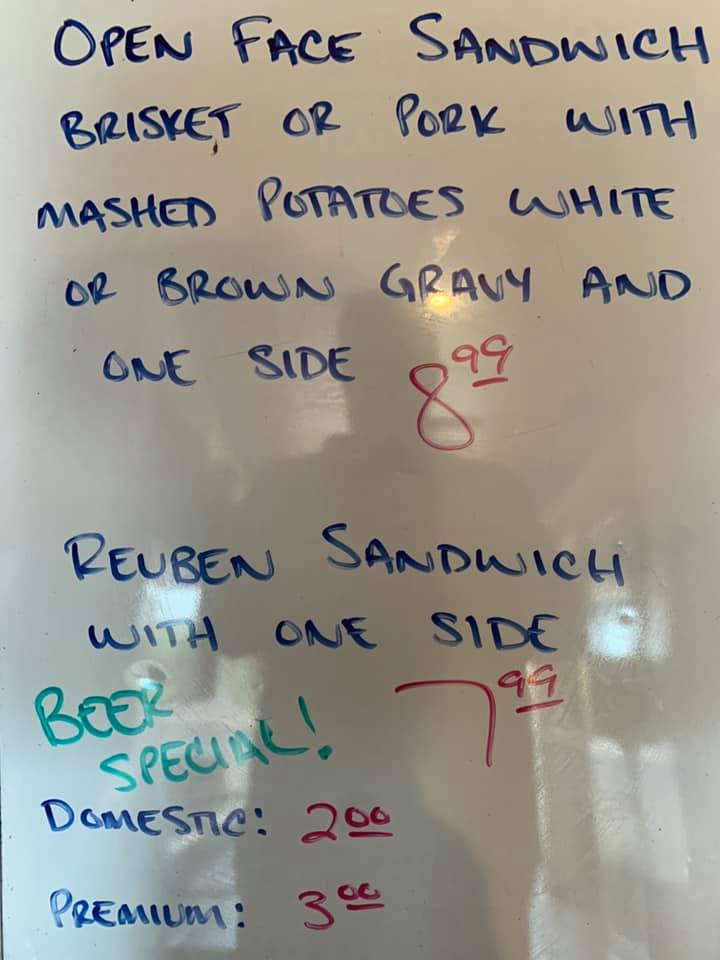 OPEN FACE SANDWICH
BRISKET OR PORK WITH
MASHED POTATOES WHITE
OR BROWN GRAVY AND
ONE SIDE 8 99
REUBEN SANDWICH
WITH ONE SIDE
7 99
BEER
SPECIAL!
DOMESTIC: 2 00
PREMIUM: 3 00